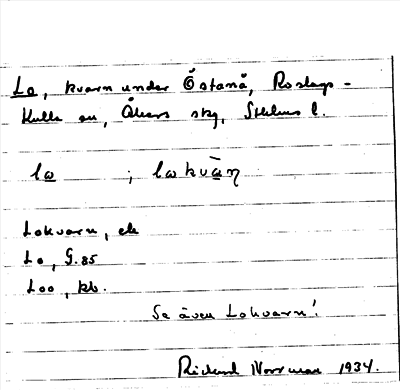 Lo, kvarn under Östanå, Roslags-
Kulla sn, Åkers skg, Sthlms l.
lω ; lωkvàn
Lokvarn, ek
Lo, G.85
Loo, kb.
Se även Lokvarn!
Rickard Norrman 1934.